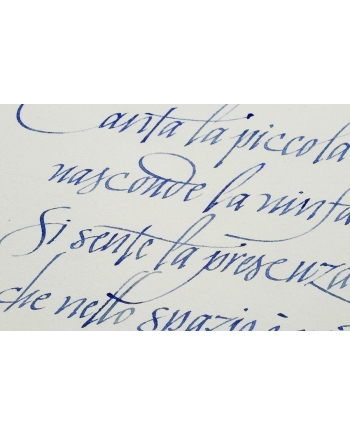 Canta la piccola
nasconde la ninfa
Si sente la presenza
che nello spazio è